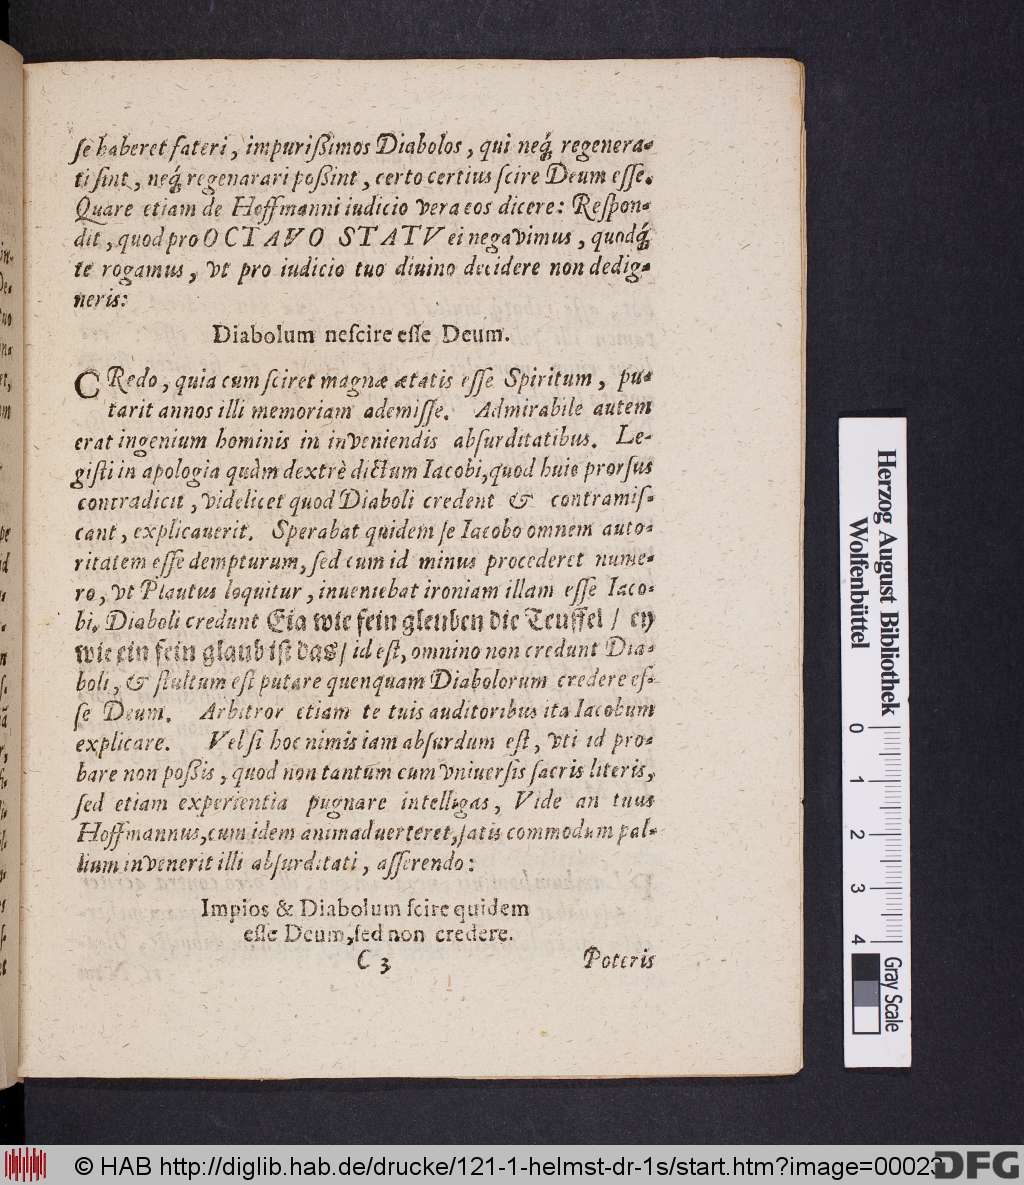 se haberet fateri, impurißimos Diabolos, qui neq́; regenera-
ti sint, neq́; regenarari poßint, certo certius scire Deum esse.
Quare etiam de Hoffmanni iudicio vera eos dicere: Respon-
dit, quod pro OCTAVO STATV ei negavimus, quodq́;
te rogamus, vt pro iudicio tuo divino decidere non dedig-
neris:
Diabolum nescire esse Deum.
CRedo, quia cum sciret magnæ ætatis esse Spiritum, pu-
tarit annos illi memoriam ademisse. Admirabile autem
erat ingenium hominis in inveniendis absurditatibus. Le-
gisti in apologia quàm dextrè dictum Iacobi, quod huic prorsus
contradicit, videlicet quod Diaboli credent & contramis-
cant, explicauerit. Sperabat quidem se Iacobo omnem auto-
ritatem esse dempturum, sed cum id minus procederet nume-
ro, vt Plautus loquitur, inueniebat ironiam illam esse Iaco-
bi. Diaboli credunt Eia wie fein gleuben die Teuffel / ey
wie ein fein glaub ist das / id est, omnino non credunt Dia-
boli, & stultum est putare quenquam Diabolorum credere es-
se Deum. Arbitror etiam te tuis auditoribus ita Iacobum
explicare. Vel si hoc nimis iam absurdum est, vti id pro-
bare non poßis, quod non tantum cum vniuersis sacris literis,
sed etiam experientia pugnare intelligas, Vide an tuus
Hoffmannus, cum idem animaduerteret, satis commodum pal-
lium invenerit illi absurditati, asserendo:
Impios & Diabolum scire quidem
esse Deum, sed non credere.
C 3 Poteris
Herzog August Bibliothek
Wolfenbüttel
0 1 2 3 4
Gray Scale
© HAB http://diglib.hab.de/drucke/121-1-helmst-dr-1s/start.htm?image=00023
DFG